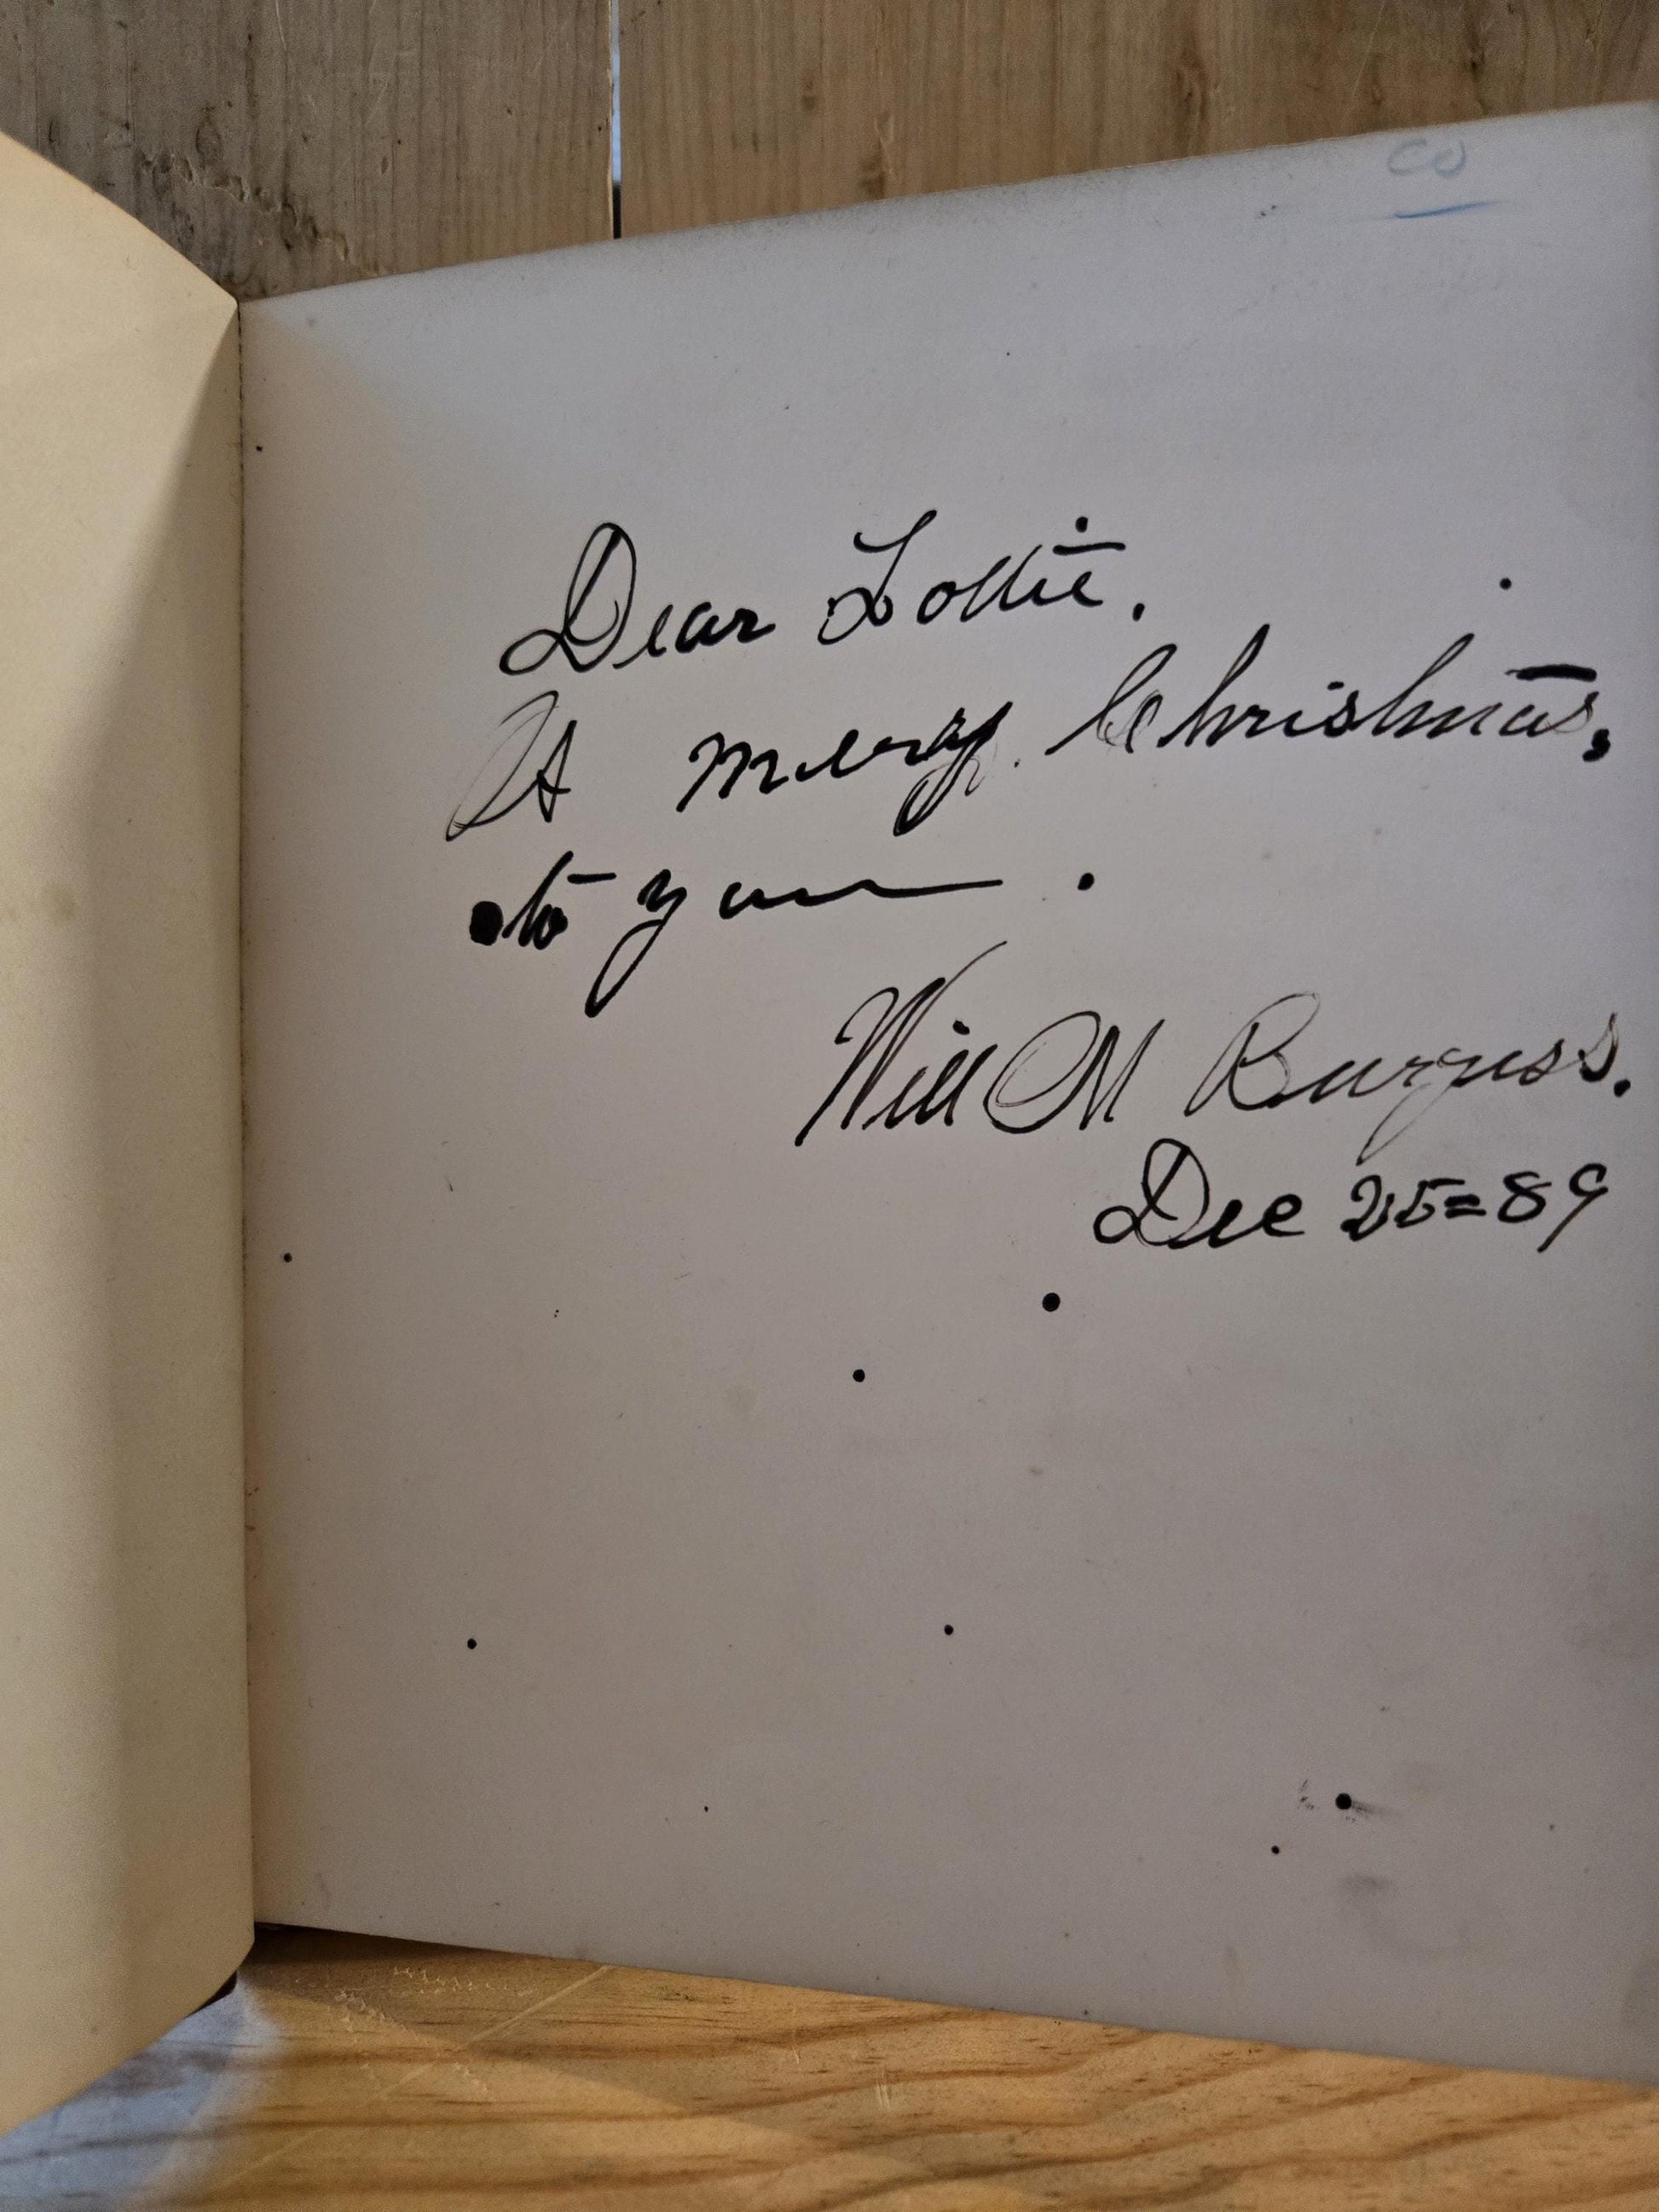 CO
Dear Lottie.
A merry Christmas.
to you .
Will M Burgess.
Dec 25=89